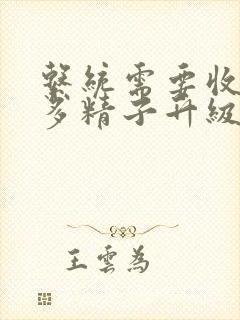 繫統需要收
多精子升級
王雲為